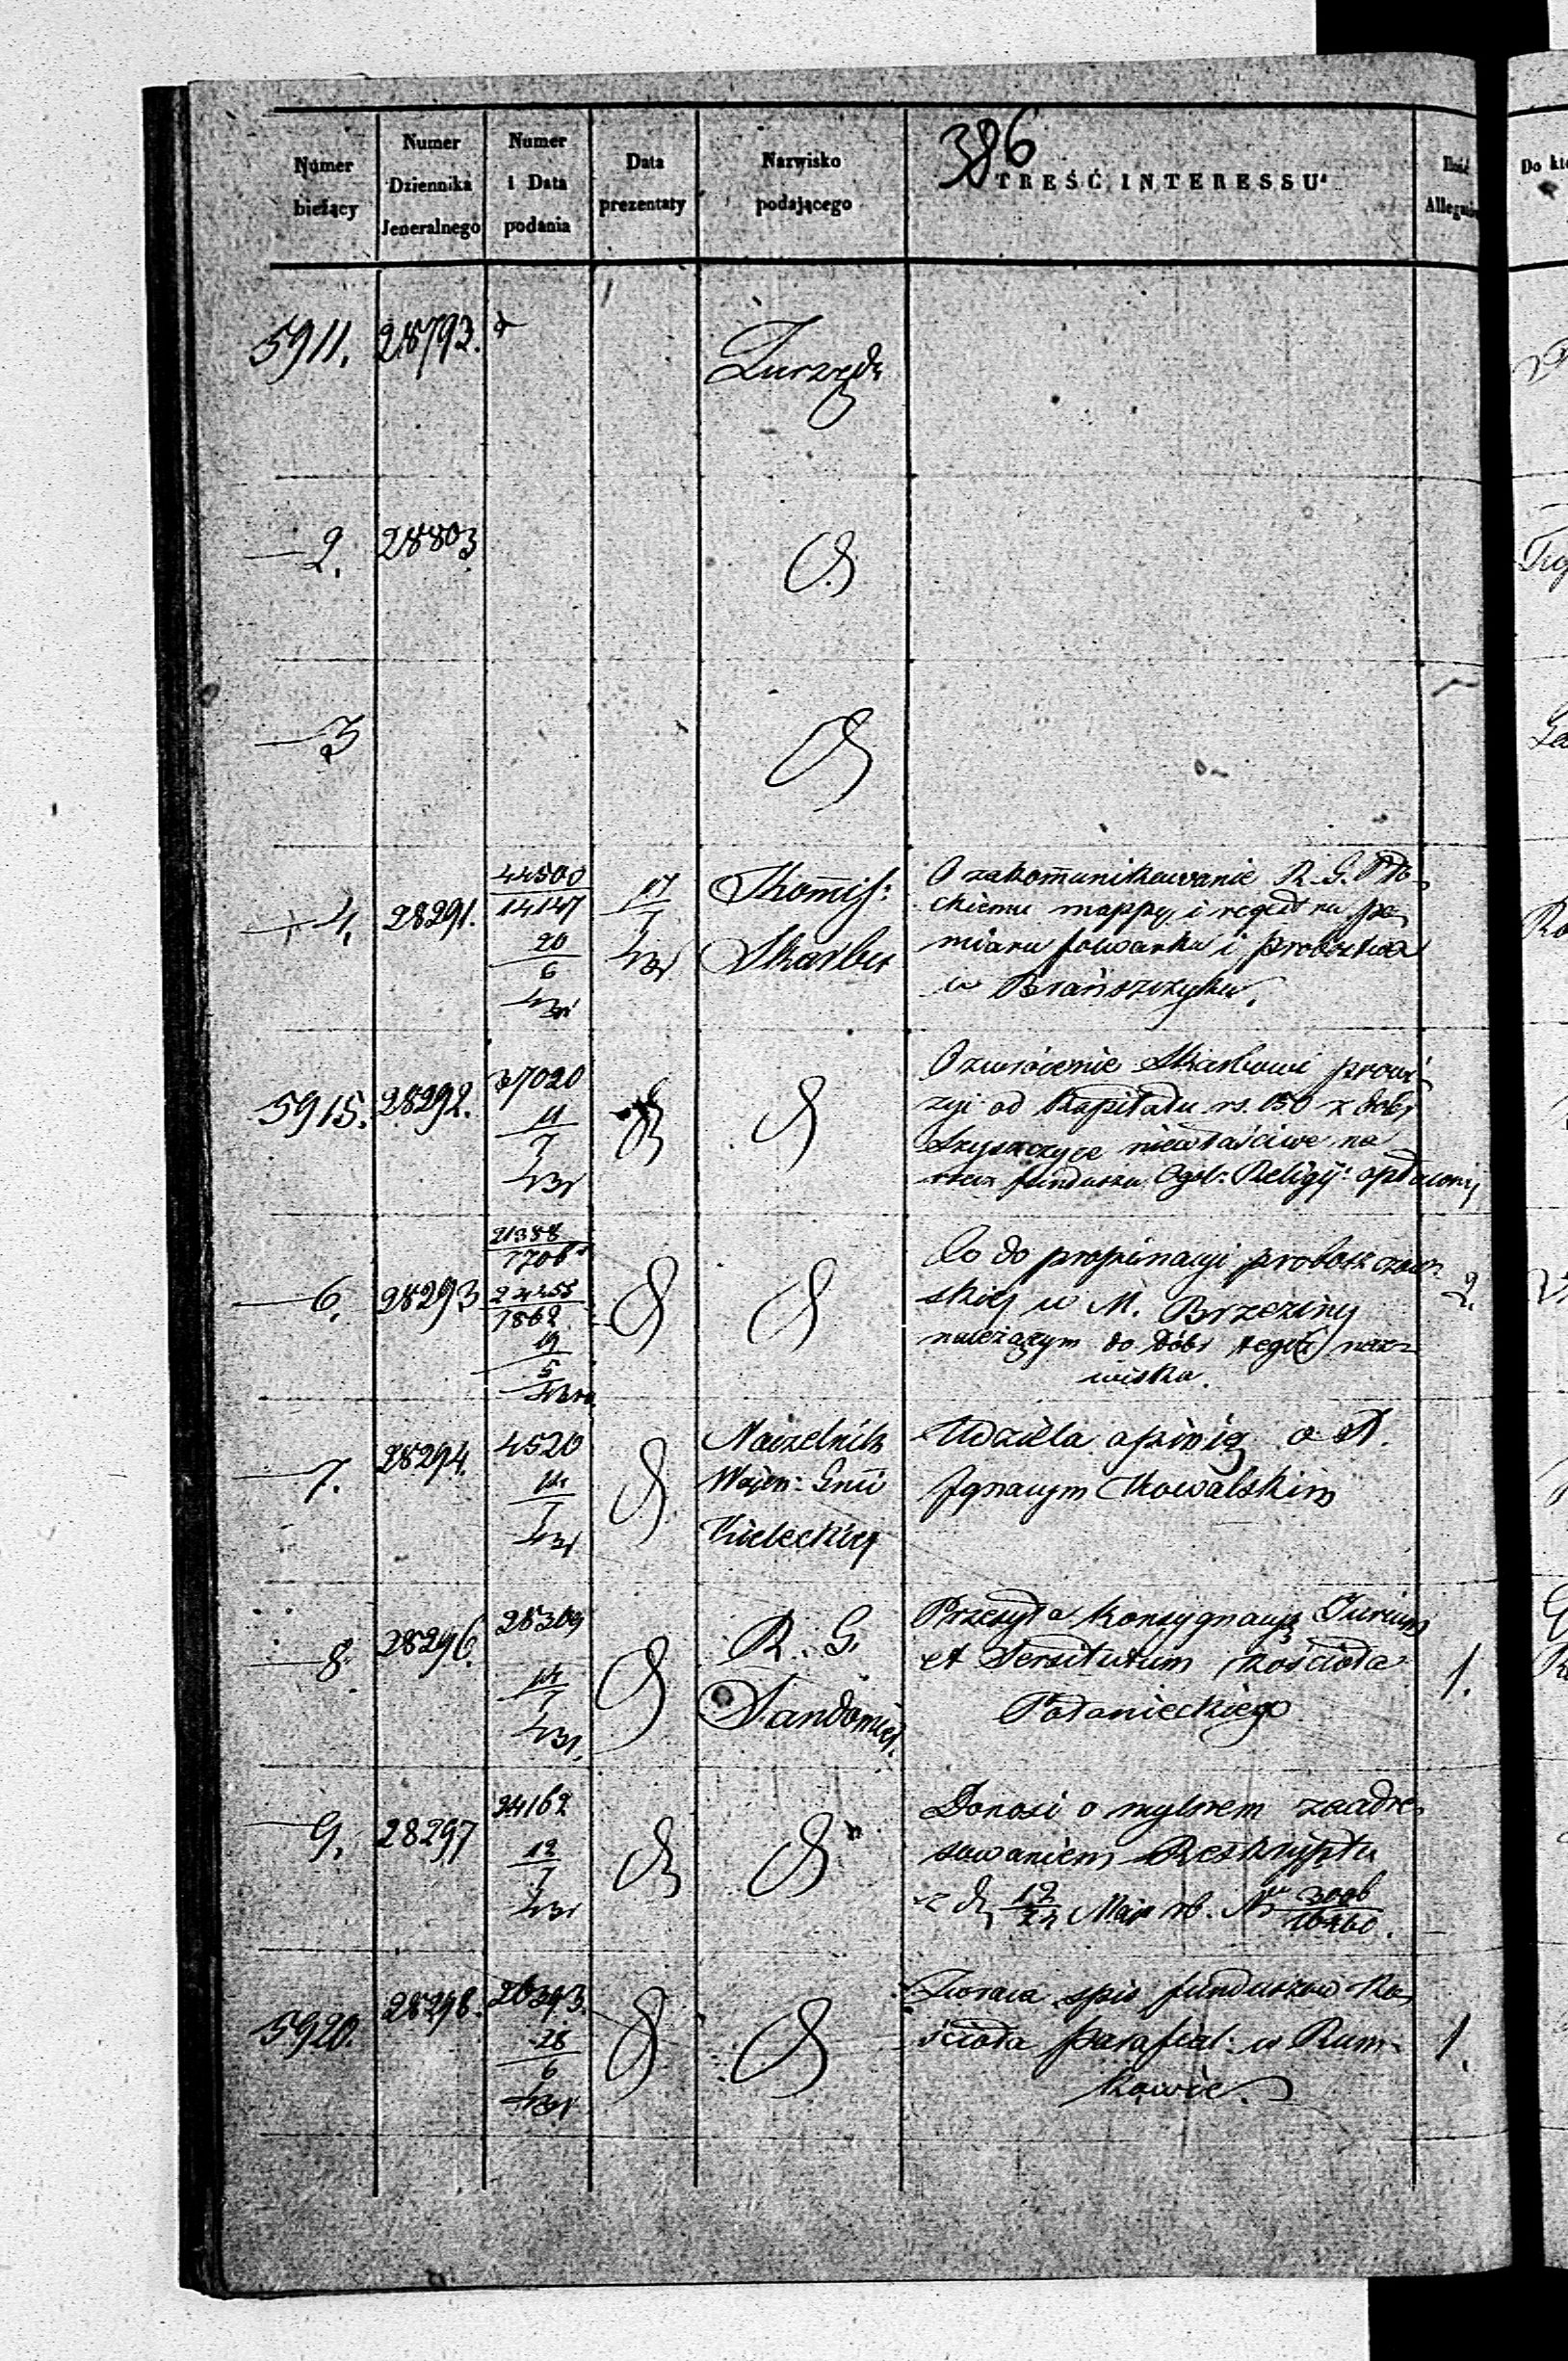 386
Numer bieżący
Numer Dziennika Jeneralnego
Numer i Data podania
Data prezentaty
Nazwisko podającego
TREŚĆ INTERESSU
Ilość
Do
5911. 28793.
Z urzędu
2. 28803
3
4. 28291. 14147 20/6 17/7 Kommiss: Skarbu
O zakommunikowanie R. G. Pło-
ckiemu mappy i regestru po-
miaru folwarku i probostwa
w Brańszczyku.
5915. 28292. 37020 11/7
O zwrócenie Skarbowi prowi-
zyi od Kapitału rs. 150 z dóbr
niewłaściwe na
rzecz funduszu Ogól: Religij:
6. 28293 21388 1862 19/5
Co do propinacyi proboszczow-
skiej w M. Brzeziny
należącym do Dóbr tegoż naz-
wiska.
2.
7. 28294. 4520 14/7 Naczelnik Wojen: Gnii Kieleckiej
Udziela opinię o X.
Ignacym Kowalskim
8. 28296. 28309 14/7 R. G. Sandomier.
Przesyła konsygnacyę Jurium
et Servitutum kościoła
Połanieckiego
1.
9. 28297 24162 12/7
Donosi o mylnem zaadre-
sowaniem Reskryptu
z d. 12/24 Maja rb. Nr
5920. 28298. 26393. 28/6
Zwraca spis funduszów Ko-
ścioła parafial: w Rum-
kowie.
1.